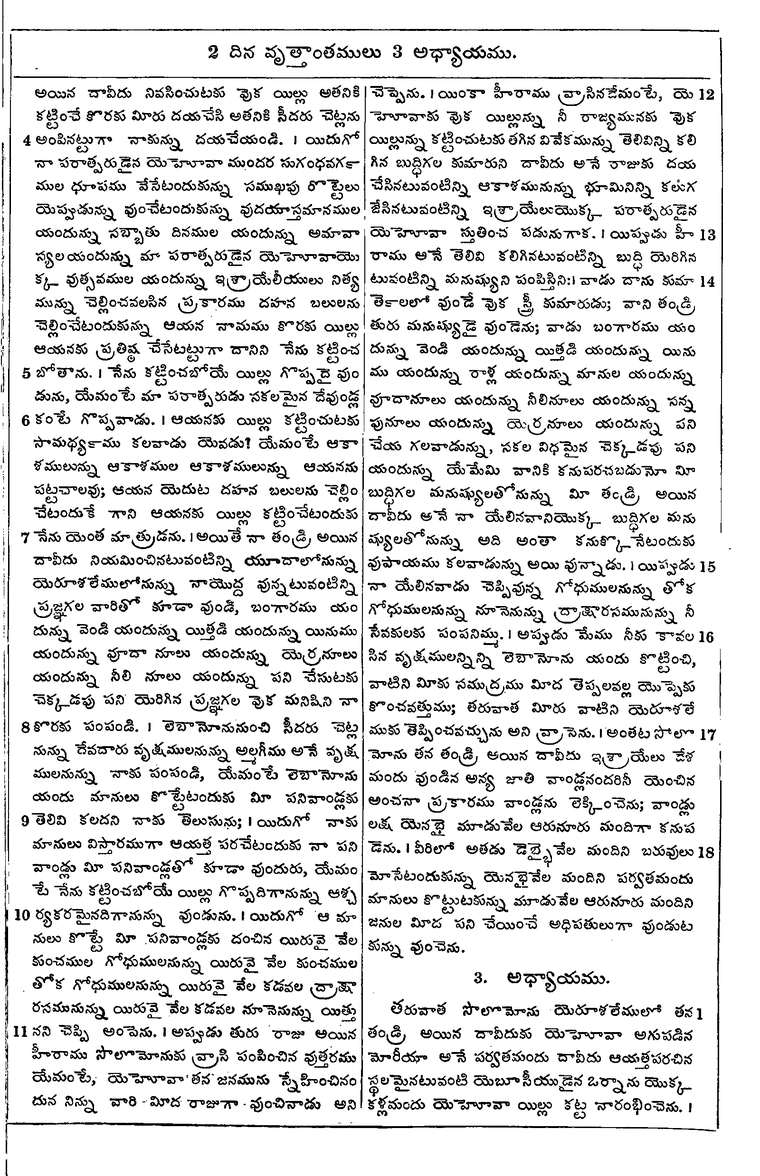 2 దిన వృత్తాంతములు 3 అధ్యాయము.
అయిన దావీదు నివసించుటకు వుక యిల్లు అతనికి
కట్టించే కొరకు మిరు దయచేసి అతనికి సీదరు చెట్లను
4 అంపినట్టుగా నాకున్ను దయచేయండి. । యిదుగో
నా పరాత్పరుడైన యెహోవా ముందర సుగంధవర్గ
ముల ధూపము వేసేటందుకున్ను సముఖపు రొట్టెలు
యెప్పుడున్ను వుంచేటందుకున్ను వుదయాస్తమానముల
యందున్ను సబ్బాతు దినముల యందున్ను అమావా
స్యలయందున్ను మా పరాత్పరుడైన యెహోవాయొ
క్క వుత్సవముల యందున్ను ఇశ్రాయేలీయులు నిత్య
మున్ను చెల్లించవలసిన ప్రకారము దహన బలులను
చెల్లించేటందుకున్ను ఆయన నామము కొరకు యిల్లు
ఆయనకు ప్రతిష్ఠ చేసేటట్టుగా దానిని నేను కట్టించ
5 బోతాను. । నేను కట్టించబోయే యిల్లు గొప్పదై వుం
డును, యేమంటే మా పరాత్పరుడు సకలమైన దేవుండ్ల
6 కంటే గొప్పవాడు. । ఆయనకు యిల్లు కట్టించుటకు
సామర్థ్యము కలవాడు యెవడు? యేమంటే ఆకా
శములున్ను ఆకాశముల ఆకాశములున్ను ఆయనను
పట్టచాలవు; ఆయన యెదుట దహన బలులను చెల్లిం
చేటందుకే గాని ఆయనకు యిల్లు కట్టించేటందుకు
7 నేను యెంత మాత్రుడను. । అయితే నా తండ్రి అయిన
దావీదు నియమించినటువంటిన్ని యూదాలోనున్ను
యెరూశలేములోనున్ను నాయొద్ద వున్నటువంటిన్ని
ప్రజ్ఞగల వారితో కూడా వుండి, బంగారము యం
దున్ను వెండి యందున్ను యిత్తడి యందున్ను యినుము
యందున్ను వూదా నూలు యందున్ను యెర్రనూలు
యందున్ను నీలి నూలు యందున్ను పని చేసుటకు
చెక్కడపు పని యెరిగిన ప్రజ్ఞగల వుక మనిషిని నా
8 కొరకు పంపండి. । లెబానోనునుంచి సీదరు చెట్ల
నున్ను దేవదారు వృక్షములనున్ను అల్గగీము అనే వృక్ష
ములనున్ను నాకు పంపండి, యేమంటే లెబానోను
యందు మానులు కొట్టేటందుకు మీ పనివాండ్లకు
9 తెలివి కలదని నాకు తెలుసును; । యిదుగో నాకు
మానులు విస్తారముగా ఆయత్త పరచేటందుకు నా పని
వాండ్లు మీ పనివాండ్లతో కూడా వుందురు, యేమం
టే నేను కట్టించబోయే యిల్లు గొప్పదిగానున్ను ఆశ్చ
10 ర్యకరమైనదిగానున్ను వుండును. । యిదుగో ఆ మా
నులు కొట్టే మీ పనివాండ్లకు దంచిన యిరువై వేల
కుంచముల గోధుములనున్ను యిరువై వేల కుంచముల
తోక గోధుములనున్ను యిరువై వేల కడవల ద్రాక్షా
రసమునున్ను యిరువై వేల కడవల నూనెనున్ను యిత్తు
11 నని చెప్పి అంపెను. । అప్పుడు తురు రాజు అయిన
హీరాము సొలొమోనుకు వ్రాసి పంపించిన వుత్తరము
యేమంటే, యెహోవా తన జనమును స్నేహించినం
దున నిన్ను వారి మీద రాజుగా వుంచినాడు అని
చెప్పెను. । యింకా హీరాము వ్రాసినదేమంటే, యె 12
హోవాకు వుక యిల్లున్ను నీ రాజ్యమునకు వుక
యిల్లున్ను కట్టించుటకు తగిన వివేకమున్ను తెలివిన్ని కలి
గిన బుద్ధిగల కుమారుని దావీదు అనే రాజుకు దయ
చేసినటువంటిన్ని ఆకాశమునున్ను భూమినిన్ని కలుగ
జేసినటువంటిన్ని ఇశ్రాయేలుయొక్క పరాత్పరుడైన
యెహోవా స్తుతించ పడునుగాక. । యిప్పుడు హీ 13
రాము అనే తెలివి కలిగినటువంటిన్ని బుద్ధి యెరిగిన
టువంటిన్ని మనుష్యుని పంపిస్తిని: । వాడు దాను కుమా 14
తెకాలలో వుండే వుక స్త్రీ కుమారుడు; వాని తండ్రి
తురు మనుష్యుడై వుండెను; వాడు బంగారము యం
దున్ను వెండి యందున్ను యిత్తడి యందున్ను యిను
ము యందున్ను రాళ్ల యందున్ను మానుల యందున్ను
వూదానూలు యందున్ను నీలినూలు యందున్ను సన్న
పునూలు యందున్ను యెర్రనూలు యందున్ను పని
చేయ గలవాడున్ను, సకల విధమైన చెక్కడపు పని
యందున్ను యేమేమి వానికి కనుపరచబడునో మీ
బుద్ధిగల మనుష్యులతోనున్ను మీ తండ్రి అయిన
దావీదు అనే నా యేలినవానియొక్క బుద్ధిగల మను
ష్యులతోనున్ను అది అంతా కనుక్కొనేటందుకు
వుపాయము కలవాడున్ను అయి వున్నాడు. । యిప్పుడు 15
నా యేలినవాడు చెప్పివున్న గోధుములనున్ను తోక
గోధుములనున్ను నూనెనున్ను ద్రాక్షారసమునున్ను నీ
సేవకులకు పంపనిమ్ము. । అప్పుడు మేము నీకు కావల 16
సిన వృక్షములన్నిన్ని లెబానోను యందు కొట్టించి,
వాటిని మీకు సముద్రము మీద తెప్పలవల్ల యొప్పెకు
కొంచవత్తుము; తరువాత మీరు వాటిని యెరూశలే
ముకు తెప్పించవచ్చును అని వ్రాసెను. । అంతట సొలొ 17
మోను తన తండ్రి అయిన దావీదు ఇశ్రాయేలు దేశ
మందు వుండిన అన్య జాతి వాండ్లనందరినీ యెంచిన
అంచనా ప్రకారము వాండ్లను లెక్కించెను; వాండ్లు
లక్ష యెనభై మూడువేల ఆరునూరు మందిగా కనుప
డెను. । వీరిలో అతడు డెబ్భైవేల మందిని బరువులు 18
మోసేటందుకున్ను యెనభైవేల మందిని పర్వతమందు
మానులు కొట్టుటకున్ను మూడువేల ఆరునూరు మందిని
జనుల మీద పని చేయించే అధిపతులుగా వుండుట
కున్ను వుంచెను.
3. అధ్యాయము.
తరువాత సొలొమోను యెరూశలేములో తన 1
తండ్రి అయిన దావీదుకు యెహోవా అగుపడిన
మోరీయా అనే పర్వతమందు దావీదు ఆయత్తపరచిన
స్థలమైనటువంటి యెబూసీయుడైన ఒర్నాను యొక్క
కళ్లమందు యెహోవా యిల్లు కట్ట నారంభించెను. ।